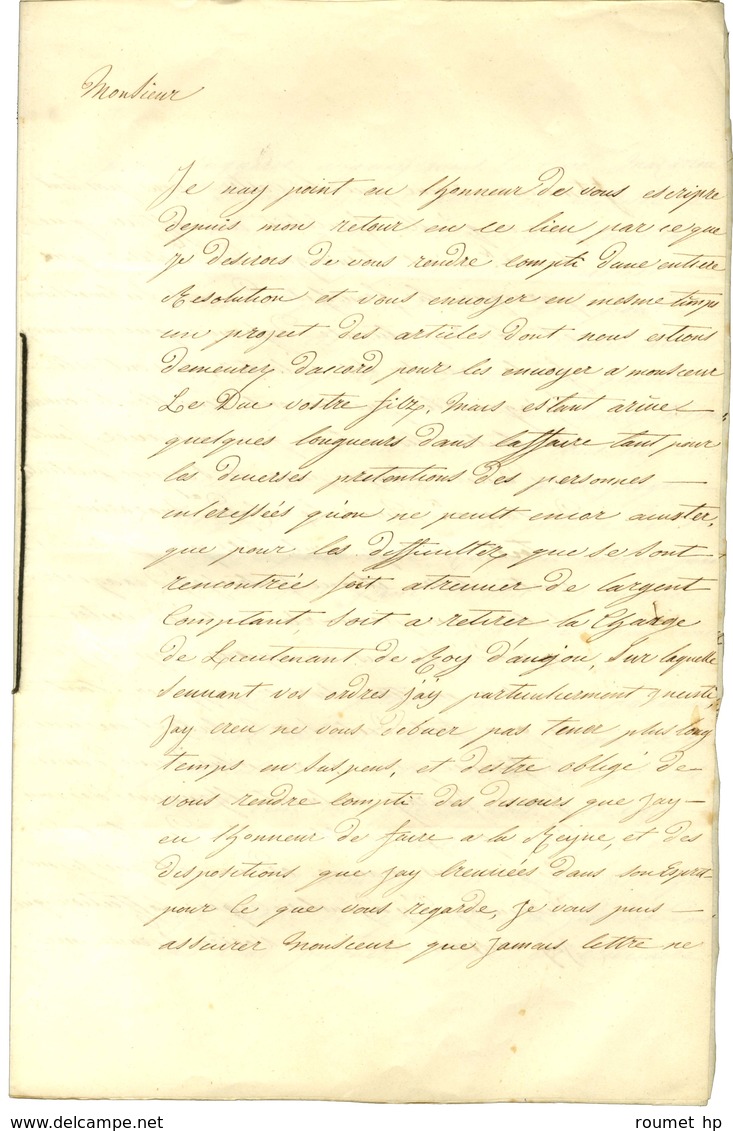 Monsieur
Je nay point eu lhonneur de vous escripre
depuis mon retour en ce lieu parceque
je desirois de vous rendre compte dune entiere
Resolution et vous envoyer en mesme temps
un project des articles dont nous estions
demeurez daccord pour les envoyer a monsieur
Le Duc vostre filz, Mais estant arivé
quelques longueurs dans laffaire tant pour
les diverses pretentions des personnes
interessées qu'on ne peult encor aiuster,
que pour les difficultez que se sont
rencontrée soit a treuver de largent
Comptant, soit a retirer la Charge
de Lieutenant de Roy d'anjou, Sur laquelle
Seuvant vos ordres j'ay particulierement insisté,
Jay creu ne vous debuer pas tener plus long
temps en suspens, et destre obligé de
vous rendre compte des discours que Jay
eu lhonneur de faire a la Reyne, et des
dispositions que jay treuvées dans son Esprit
pour ce que vous regarde, Je vous puis
asseurer Monsieur que jamais lettre ne
www.delcampe.net
roumet hp